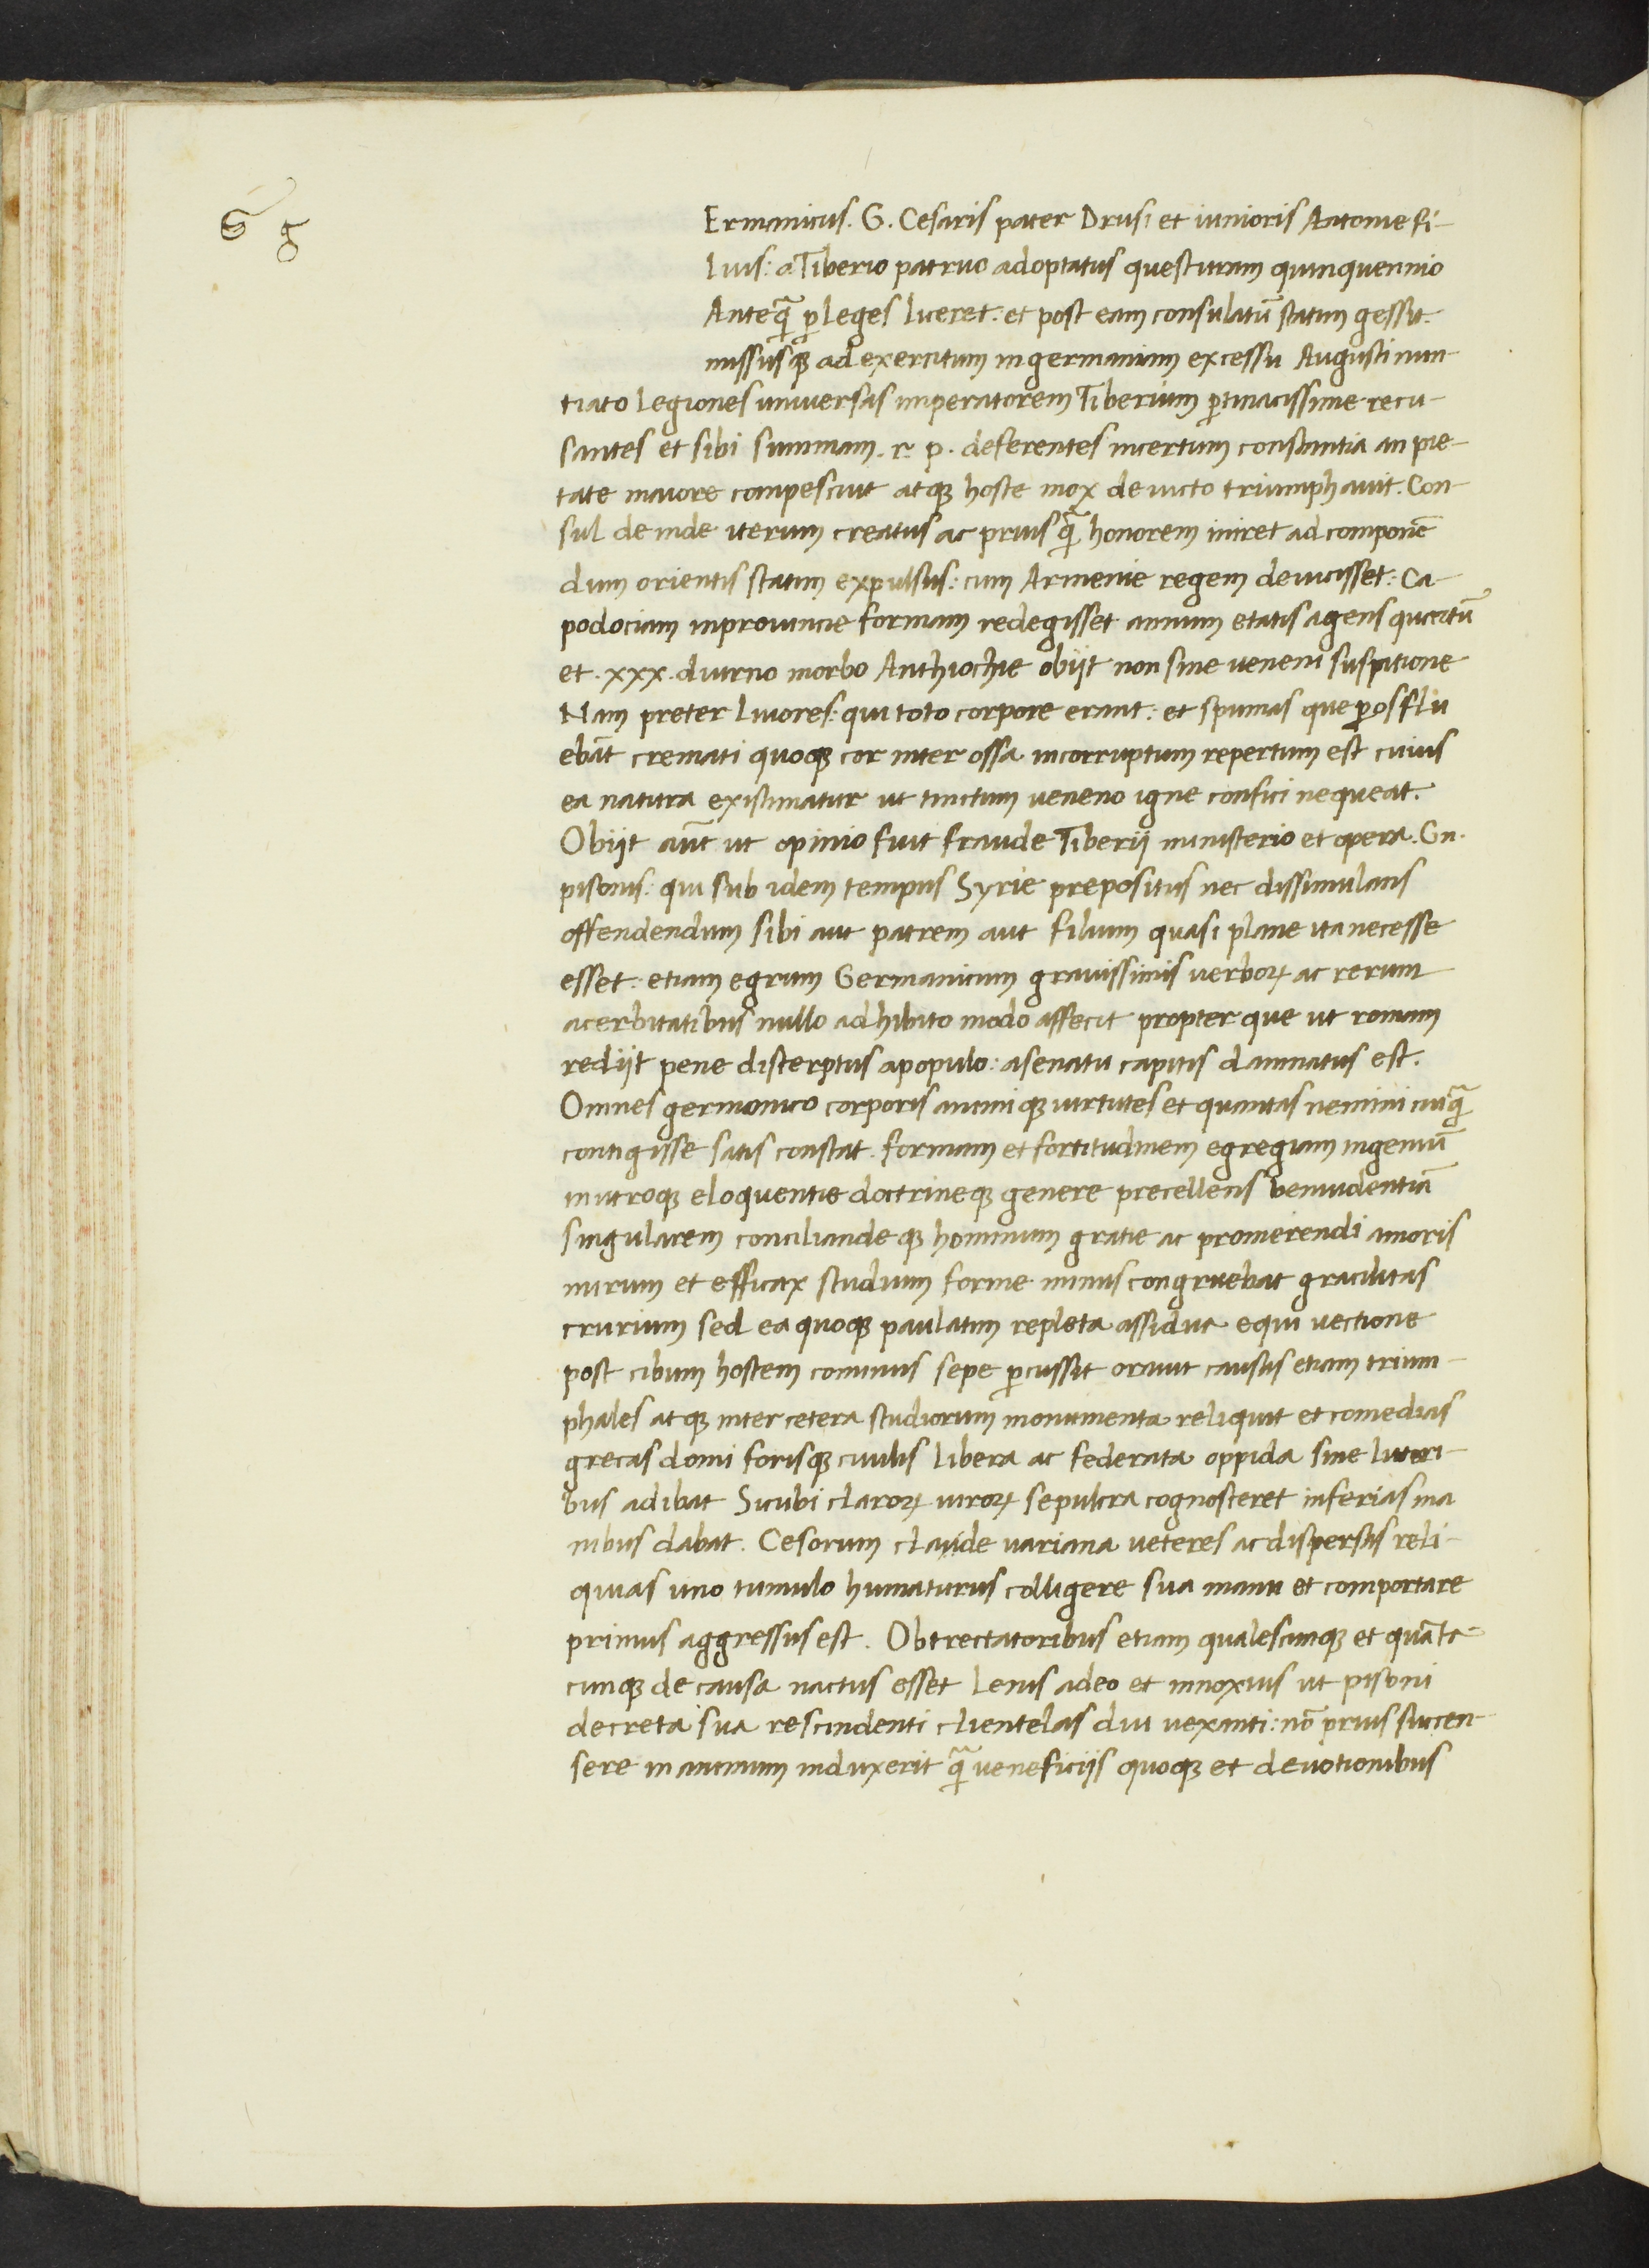 G g
Ermanicus. G. Cesaris pater Drusi et iunioris Antonie fi-
lius: a Tiberio patruo adoptatus questuram quinquennio
Anteqͣ ꝑ leges liceret: et post eam consulatū statim gessit.
missusqꝫ ad exercitum in germaniam excessu Augusti nun-
tiato legiones universas imperatorem Tiberium ꝑtinacissime recu-
santes et sibi summam. r. p. deferentes incertum constantia an pie-
tate maiore compescuit atqꝫ hoste mox devicto triumphavit. Con-
sul deinde iterum creatus ac priusqͣ honorem iniret ad componē
dum orientis statum expulsus: cum Armenie regem devicisset: Ca-
podociam in provincie formam redegisset annum etatis agens quartū
et. xxx. diurno morbo Anthiochie obijt non sine veneni suspitione
Nam preter livores: qui toto corpore erant: et spumas que ꝑ os flu
ebāt cremati quoqꝫ cor inter ossa incorruptum repertum est cuius
ea natura existimatur ut tinctum veneno igne confici nequeat.
Obijt aūt ut opinio fuit fraude Tiberij ministerio et opera. Gn.
pisonis: qui sub idem tempus Syrie prepositus nec dissimulans
offendendum sibi aut patrem aut filium quasi plane ita necesse
esset: etiam egrum Germanicum gravissimis verboꝝ ac rerum
acerbitatibus nullo adhibito modo affecit propter que ut romam
redijt pene discerptus a populo: a senatu capitis damnatus est.
Omnes germonico corporis animiqꝫ virtutes et quantas nemini cuiqͣ
contigisse satis constat. formam et fortitudinem egregiam ingeniū
in utroqꝫ eloquentie doctrineqꝫ genere precellens benividentiā
singularem conciliandeqꝫ hominum gratie ac promerendi amoris
mirum et efficax studium forme minus congruebat gracilitas
crurium sed ea quoqꝫ paulatim repleta assidua equi vectione
post cibum hostem cominus sepe ꝑcussit oravit causas etiam trium-
phales atqꝫ inter cetera studiorum monumenta reliquit et comedias
grecas domi forisqꝫ civilis libera ac federata oppida sine lictori-
bus adibat Sicubi claroꝝ viroꝝ sepulcra cognosceret inferias ma
nibus dabat. Cesorum clavide variana veteres ac dispersas reli-
quias uno tumulo humaturus colligere sua manu et comportare
primus aggressus est. Obtrectatoribus etiam qualescunqꝫ et quāta-
cunqꝫ de causa nactus esset lenis adeo et innoxius ut pisoni
decreta sua rescindenti clientelas diu vexanti: nō prius succen-
sere in animum induxerit qͣ veneficijs quoqꝫ et devotionibus